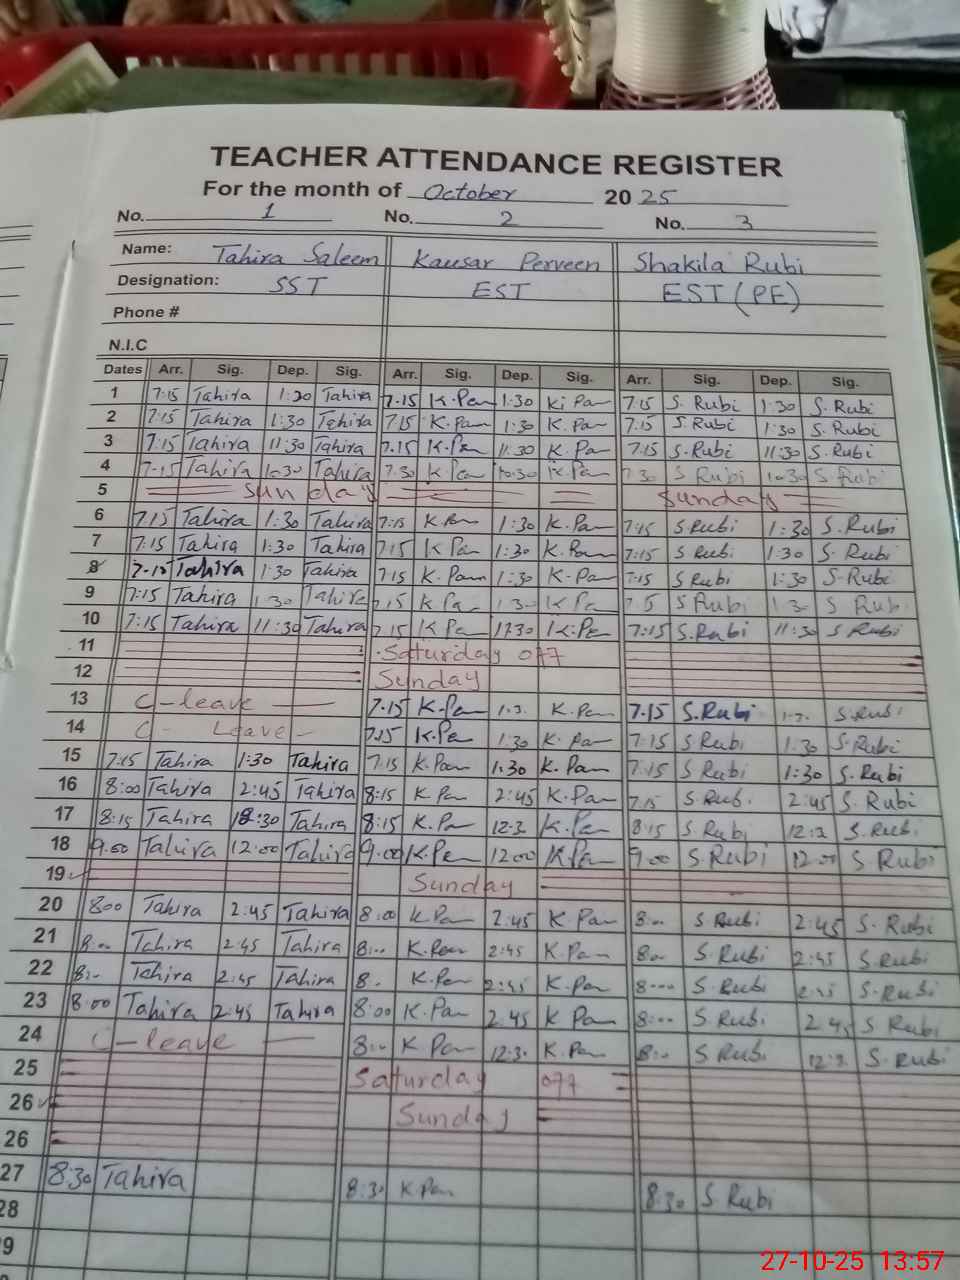 TEACHER ATTENDANCE REGISTER
For the month of October 2025
No. 1 No. 2 No. 3
Name: Tahira Saleem Kausar Perveen Shakila Rubi
Designation: SST EST EST (PE)
Phone #
N.I.C
Dates Arr. Sig. Dep. Sig. Arr. Sig. Dep. Sig. Arr. Sig. Dep. Sig.
1 7:15 Tahira 1:30 Tahira 7.15 K.Pan 1:30 K. Pan 7:15 S. Rubi 1:30 S. Rubi
2 7:15 Tahira 1:30 Tahira 7.15 K.Pan 1:30 K. Pan 7:15 S. Rubi 1:30 S. Rubi
3 7:15 Tahira 11:30 Tahira 7.15 K.Pan 11:30 K. Pan 7:15 S. Rubi 11:30 S. Rubi
4 7:15 Tahira 10:30 Tahira 7:30 K Pan 10:30 K-Pan 7:30 S Rubi 10:30 S Rubi
5 Sunday Sunday
6 7:15 Tahira 1:30 Tahira 7:15 K Pan 1:30 K. Pan 7:15 S Rubi 1:30 S. Rubi
7 7:15 Tahira 1:30 Tahira 7:15 K Pan 1:30 K. Pan 7:15 S Rubi 1:30 S. Rubi
8 7.15 Tahira 1:30 Tahira 7:15 K. Pan 1:30 K-Pan 7:15 S Rubi 1:30 S-Rubi
9 7:15 Tahira 1:30 Tahira 7.15 K Pa 1:30 K Pa S Rubi S Rub
10 7:15 Tahira 11:30 Tahira 7.15 K Pan 11:30 K.Pa 7:15 S.Rubi 11:30 S Rubi
11 Saturday off
12 Sunday
13 C-leave 7.15 K.Pan 1.3. K.Pan 7.15 S.Rubi 1.3. S.Rubi
14 C- Leave- 7:15 K.Pa 1:30 K Pan 7:15 S Rubi 1:30 S. Rubi
15 7:15 Tahira 1:30 Tahira 7:15 K.Pan 1:30 K. Pan 7:15 S Rubi 1:30 S. Rubi
16 8:00 Tahira 2:45 Tahira 8:15 K Pan 2:45 K.Pan 7:15 S.Rub. 2:45 S. Rubi
17 8:15 Tahira 12:30 Tahira 8:15 K.Pan 12:3. K.Pan 8:15 S.Rubi 12:3. S. Rubi
18 9.00 Tahira 12:00 Tahira 9.00 K.Pan 12:00 K.Pan 9:00 S.Rubi 12:00 S Rubi
19 Sunday
20 8:00 Tahira 2:45 Tahira 8:00 K Pan 2:45 K. Pan 8:00 S. Rubi 2:45 S. Rubi
21 8:00 Tahira 2:45 Tahira 8:00 K.Pan 2:45 K.Pan 8:00 S. Rubi 2:45 S. Rubi
22 8:- Tahira 2:45 Tahira 8. K.Pan 2:45 K.Pan 8:00 S. Rubi 2:45 S.Rubi
23 8:00 Tahira 2:45 Tahira 8:00 K. Pan 2.45 K Pan 8:00 S. Rubi 2 45 S Rubi
24 C-leave 8:00 K Pan 12:3. K. Pan 8:00 S. Rubi 12:3. S. Rubi
25 Saturday off
26 Sunday
26
27 8:30 Tahira 8:30 K.Pan 8:30 S. Rubi
28
9
27-10-25 13:57